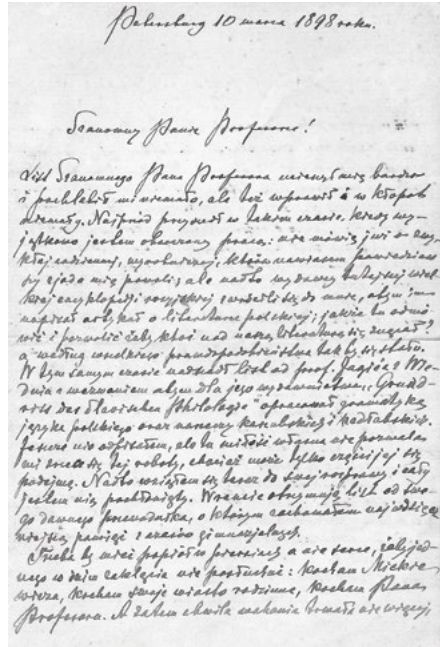 Petersburg 10 marca 1898 roku.
Szanowny Panie Profesorze!
List Szanownego Pana Profesora ucieszył mię bardzo
i pochlebił mi niemało, ale też wprawił i w kłopot
niemały. Najpierw przyszedł w takim czasie, kiedy wy-
jątkowo jestem obarczony pracą: nie mówię już o zwy-
kłej codziennej, wyrobniczej, która nawiasem powiedziawszy
zjada mię powoli, ale nadto wydawcy tutejszej wiel-
kiej encyklopedji rosyjskiej zwrócili się do mnie, abym im
napisał artykuł o literaturze polskiej; jakże tu odmó-
wić i pozwolić żeby ktoś nad naszą literaturą się znęcał?
a według wszelkiego prawdopodobieństwa tak by się stało.
W tym samym czasie nadszedł list od prof. Jagića z Wie-
dnia z wezwaniem abym dla jego wydawnictwa „Grund-
riss der slavischen Philologie" opracował gramatykę
języka polskiego oraz narzeczy kaszubskiego i
Jeszcze nie odpisałem, ale ta miłość własna nie pozwala
mi zrzec się tej roboty, chociaż może tylko części jej się
podejmę. Nadto wziąłem się teraz do swej rozprawy i cały
jestem nią pochłonięty. Wreszcie otrzymuję list od swe-
go dawnego przewodnika, o którym zachowałem najwdzięcz-
niejszą pamięć z czasów gimnazjalnych.
Trzeba by mieć popiół w piersiach a nie serce, żeby jed-
nego w nim zaklęcia nie posłuchać: kocham Mickie-
wicza, kocham swoje miasto rodzinne, kocham Pana
Profesora. A zatem chwila wahania trwała nie więcej,